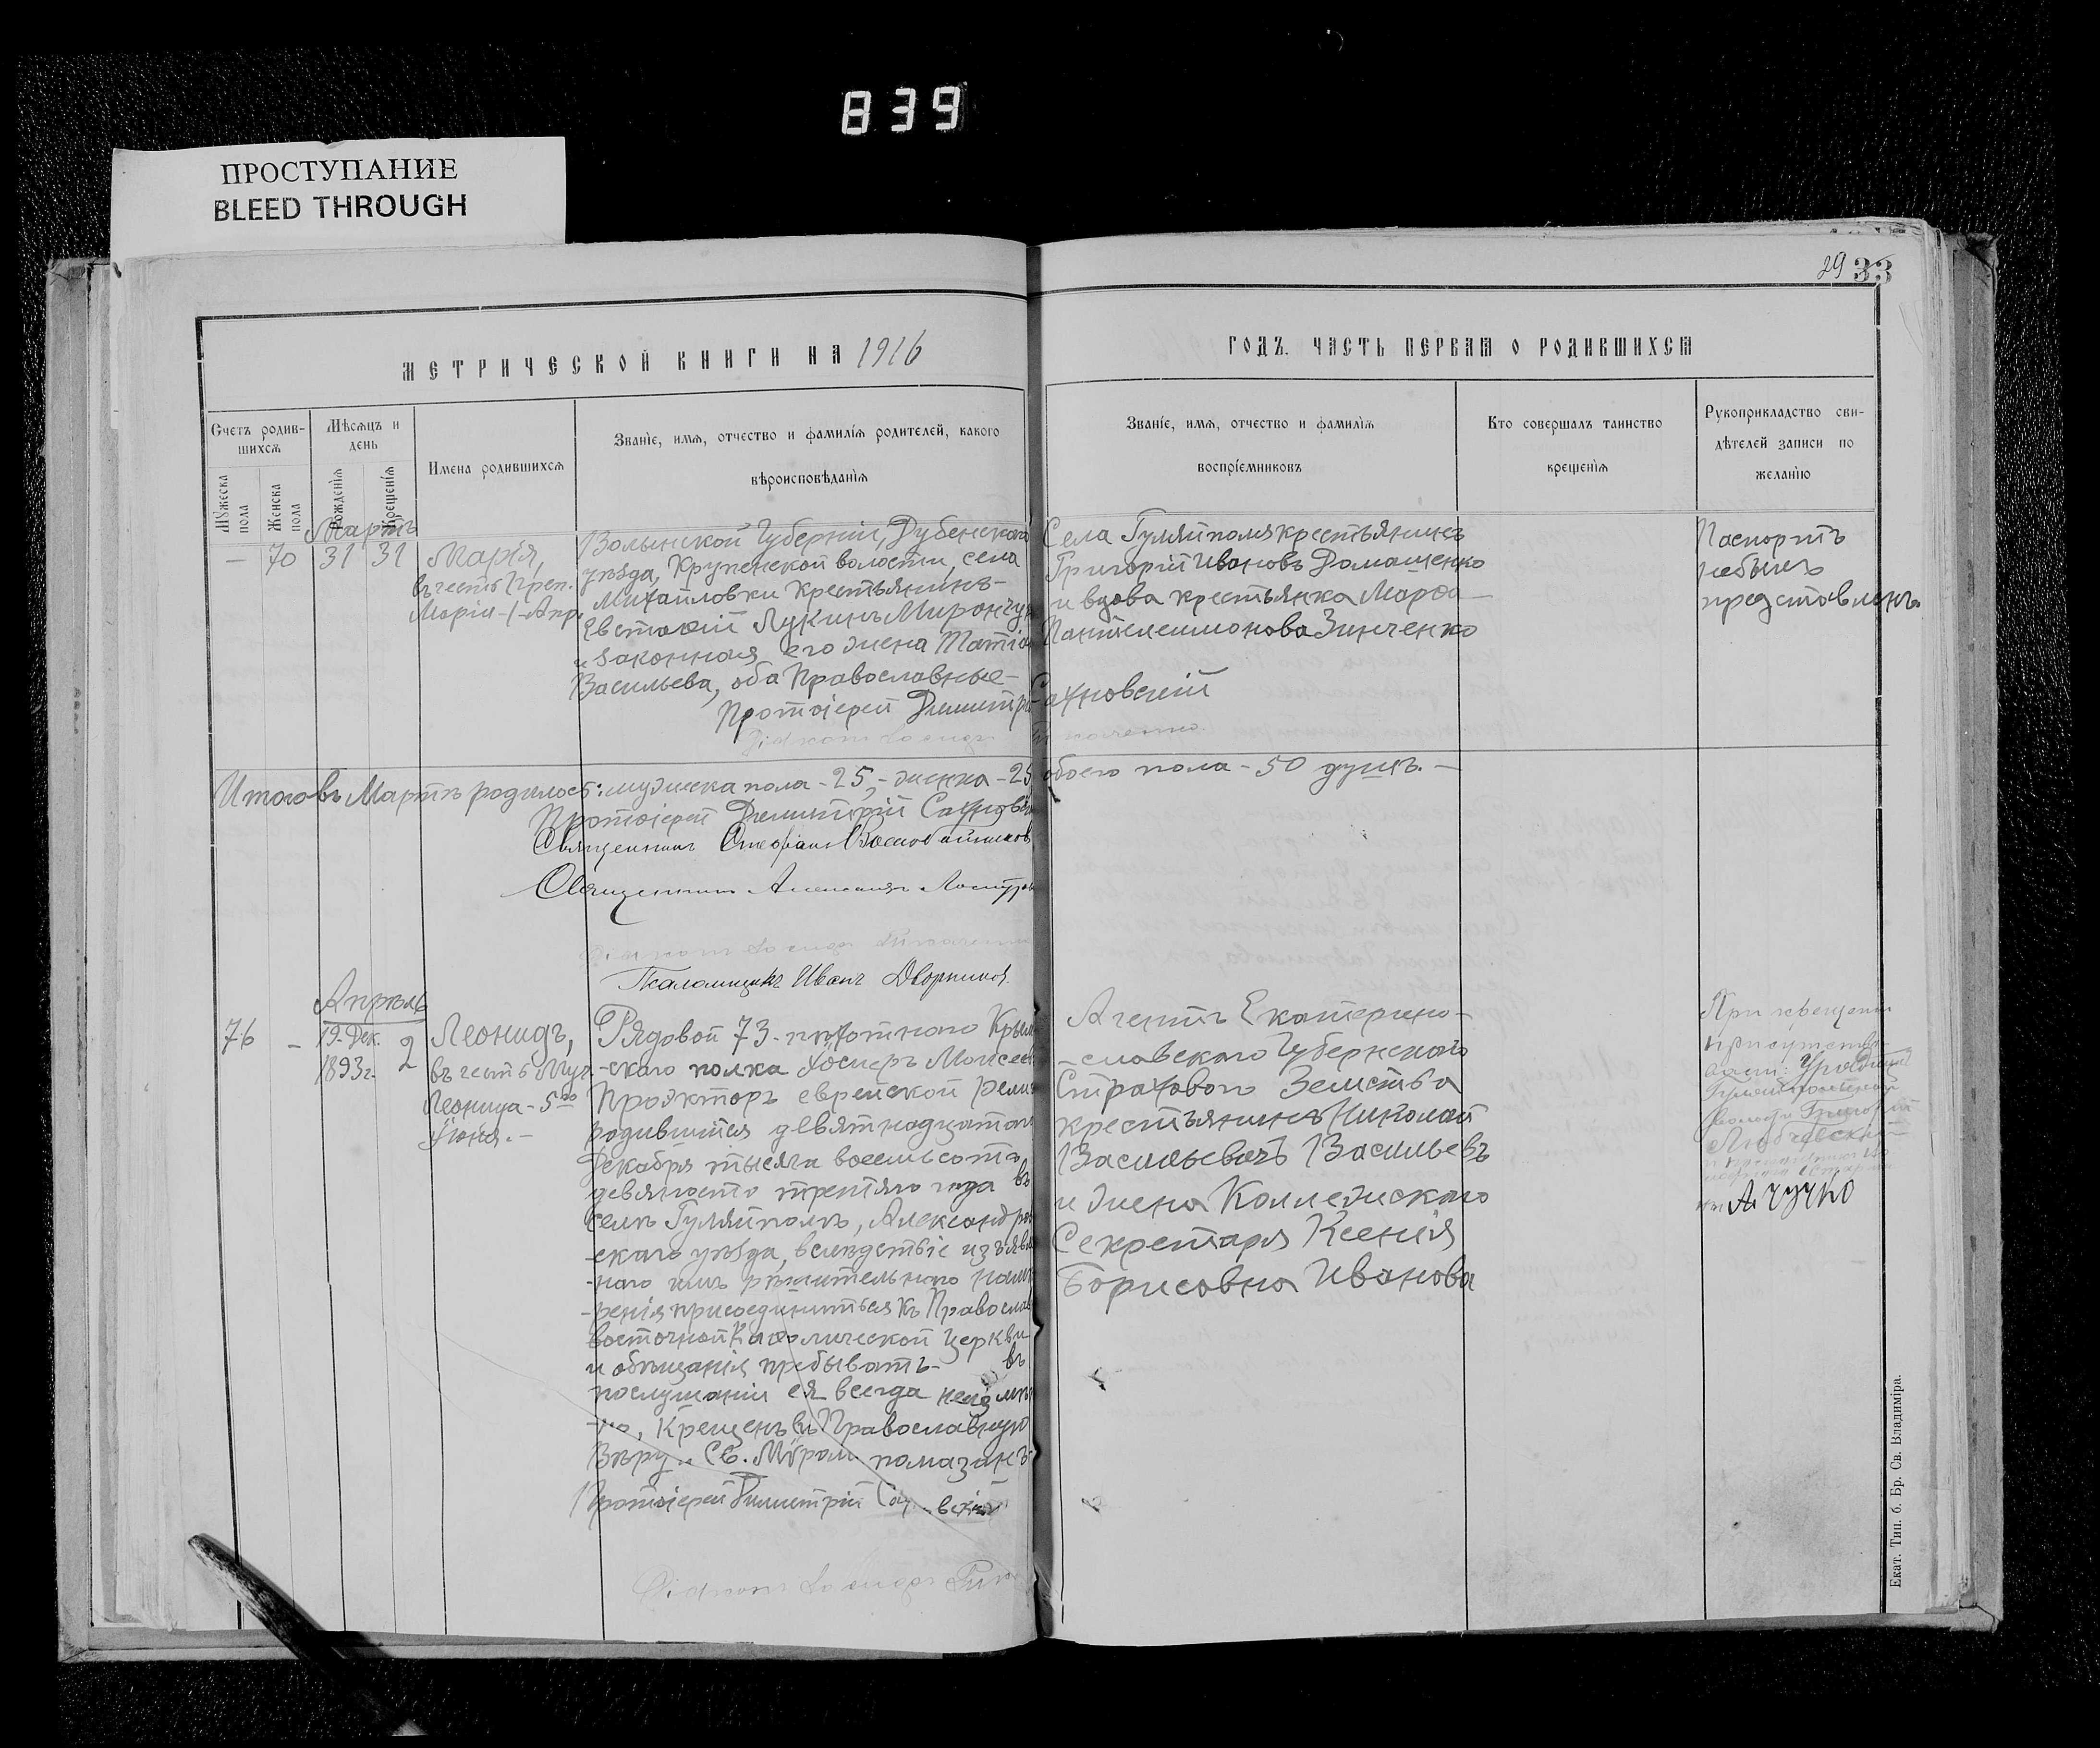 839
ПРОСТУПАНИЕ
BLEED THROUGH
29 33
МЕТРИЧЕСКОЙ КНИГИ НА 1916
ГОДЪ. ЧАСТЬ ПЕРВАЯ О РОДИВШИХСЯ
Счетъ родив-
шихся
Мужеска пола
Женска пола
Мѣсяцъ и
день
Рожденія
Крещенія
Имена родившихся
Званіе, имя, отчество и фамилія родителей, какого
вѣроисповѣданія
Званіе, имя, отчество и фамилія
воспріемниковъ
Кто совершалъ таинство
крещенія
Рукоприкладство сви-
дѣтелей записи по
желанію
Мартъ
— 70 31 31
Марія,
въ честь Преп.
Маріи - 1 - Апр.
Волынской Губерніи, Дубенскаго
уѣзда, Крупецкой волости, села
Михайловки Крестьянинъ
Евстафій Лукинъ Мирончук
и законная его жена Татіа
Васильева, оба Православные -
Протоіерей Димитрій Сахновскій
Села Гуляйполя крестьянинъ
Григорій Ивановъ Домашенко
и вдова крестьянка Марфа
Пантелеимонова Зинченко
Паспортъ
небылъ
представленъ
Итого въ Мартѣ родилось: мужеска пола - 25, - женска - 25 обоего пола - 50 душъ. -
Протоіерей Димитрій Сахновскій
Священникъ Стефанъ Воскобойников
Священникъ Александръ
Псаломщикъ Иванъ Дворников
Апрѣль
76 - 19 Дек.
1893 г. 2
Леонидъ,
въ честь Муч.
Леонида - 5го
Іюня. -
Рядовой 73. пѣхотнаго Крым
-скаго полка Хоскеръ Моисеев
Прожкторъ еврейской рели
родившійся девятнадцатаго
Декабря тысяча восемьсотъ
девяносто третьяго года въ
селѣ Гуляйполѣ, Александров
-скаго уѣзда, вслѣдствіе изъявлен
-наго имъ рѣшительнаго намѣ
-ренія присоединиться къ Православ
восточной Каѳолической Церкви
и обѣщанія пребывать въ
послушаніи ея всегда неизмѣн
-но, Крещенъ въ Православную
Вѣру и Св. Мѵромъ помазанъ
Протоіерей Димитрій Сахновскій
Агентъ Екатерино-
-славскаго Губернскаго
Страховаго Земства
крестьянинъ Николай
Васильевичъ Васильевъ
и жена Коллежскаго
Секретаря Ксенія
Борисовна Иванова
При крещеніи
А. Чучко
Екат. Тип. б. Бр. Св. Владиміра.